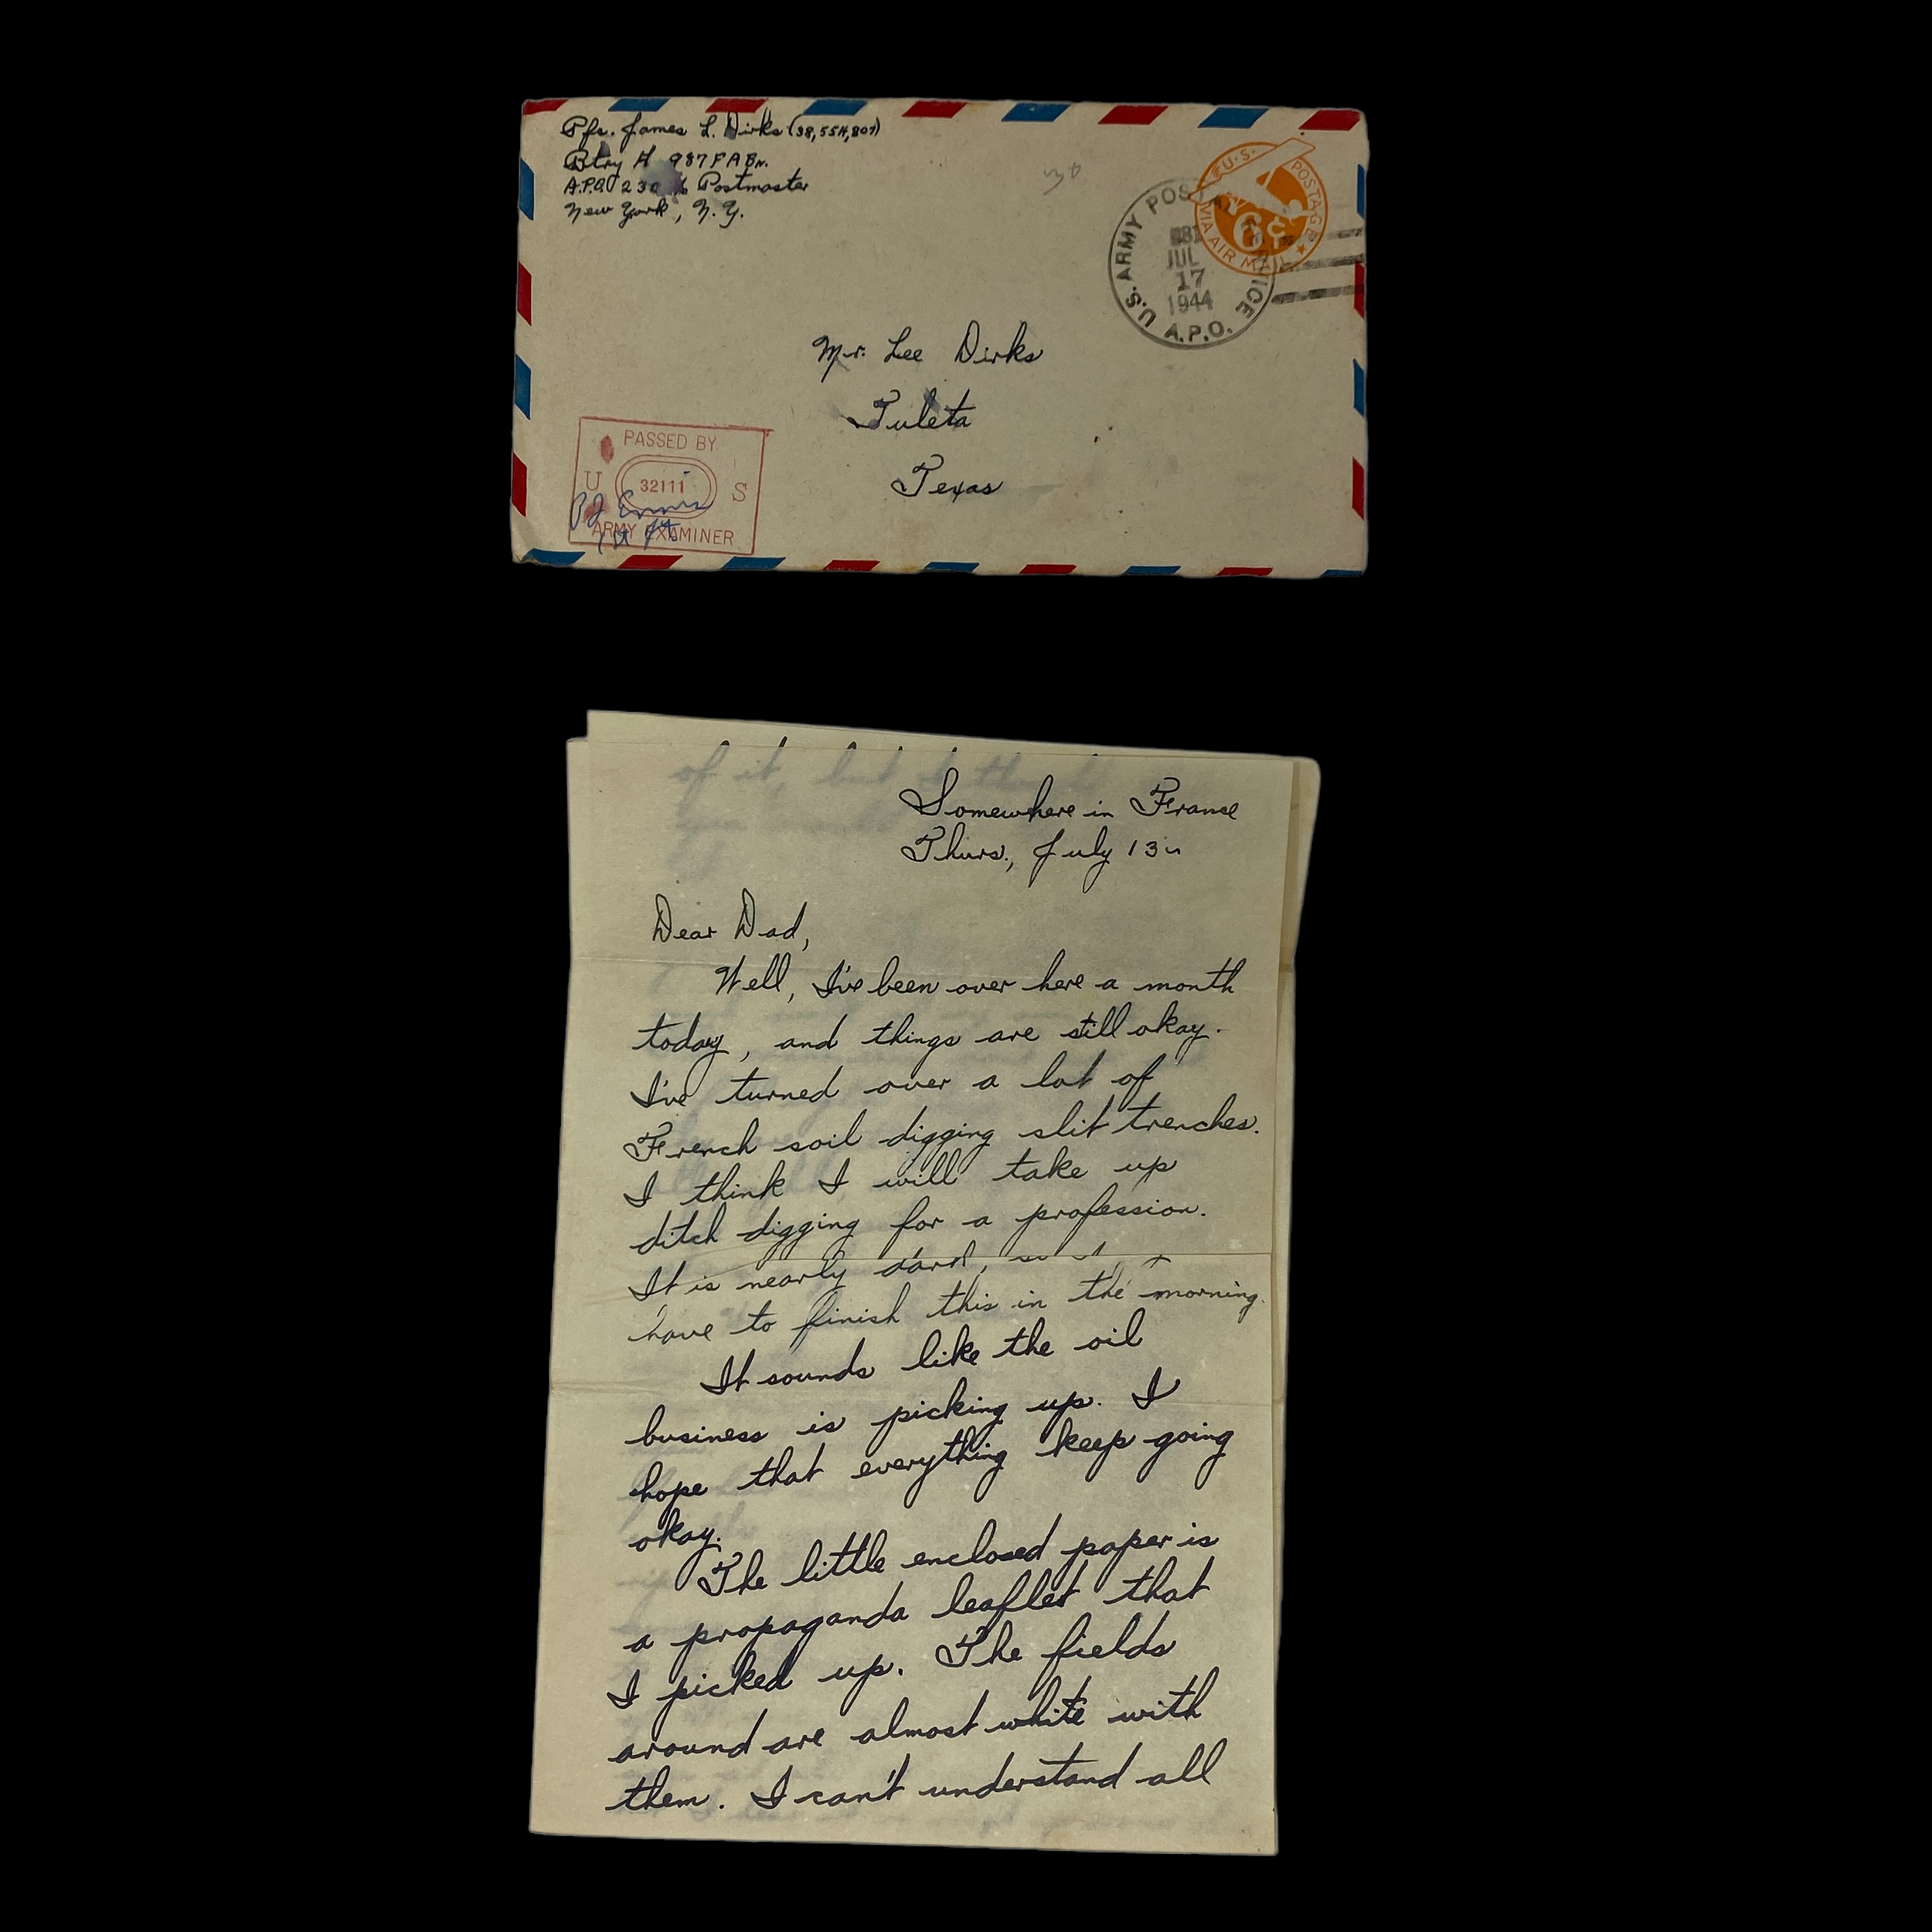 Pfc. James L. Dirks (38,554,807)
Btry A 987 F A Bn.
A.P.O 230 % Postmaster
New York, N.Y.
30
U.S. POSTAGE
6¢
VIA AIR MAIL
U.S. ARMY POSTAL SERVICE
A.P.O.
JUL
17
1944
Mr. Lee Dirks
Tuleta
Texas
PASSED BY
U 32111 S
ARMY EXAMINER
1st Lt
of it, but I
Somewhere in France
Thurs., July 13
Dear Dad,
Well, I've been over here a month
today, and things are still okay.
I've turned over a lot of
French soil digging slit trenches.
I think I will take up
ditch digging for a profession.
It is nearly dark, so I
have to finish this in the morning.
It sounds like the oil
business is picking up. I
hope that everything keep going
okay.
The little enclosed paper is
a propaganda leaflet that
I picked up. The fields
around are almost white with
them. I can't understand all